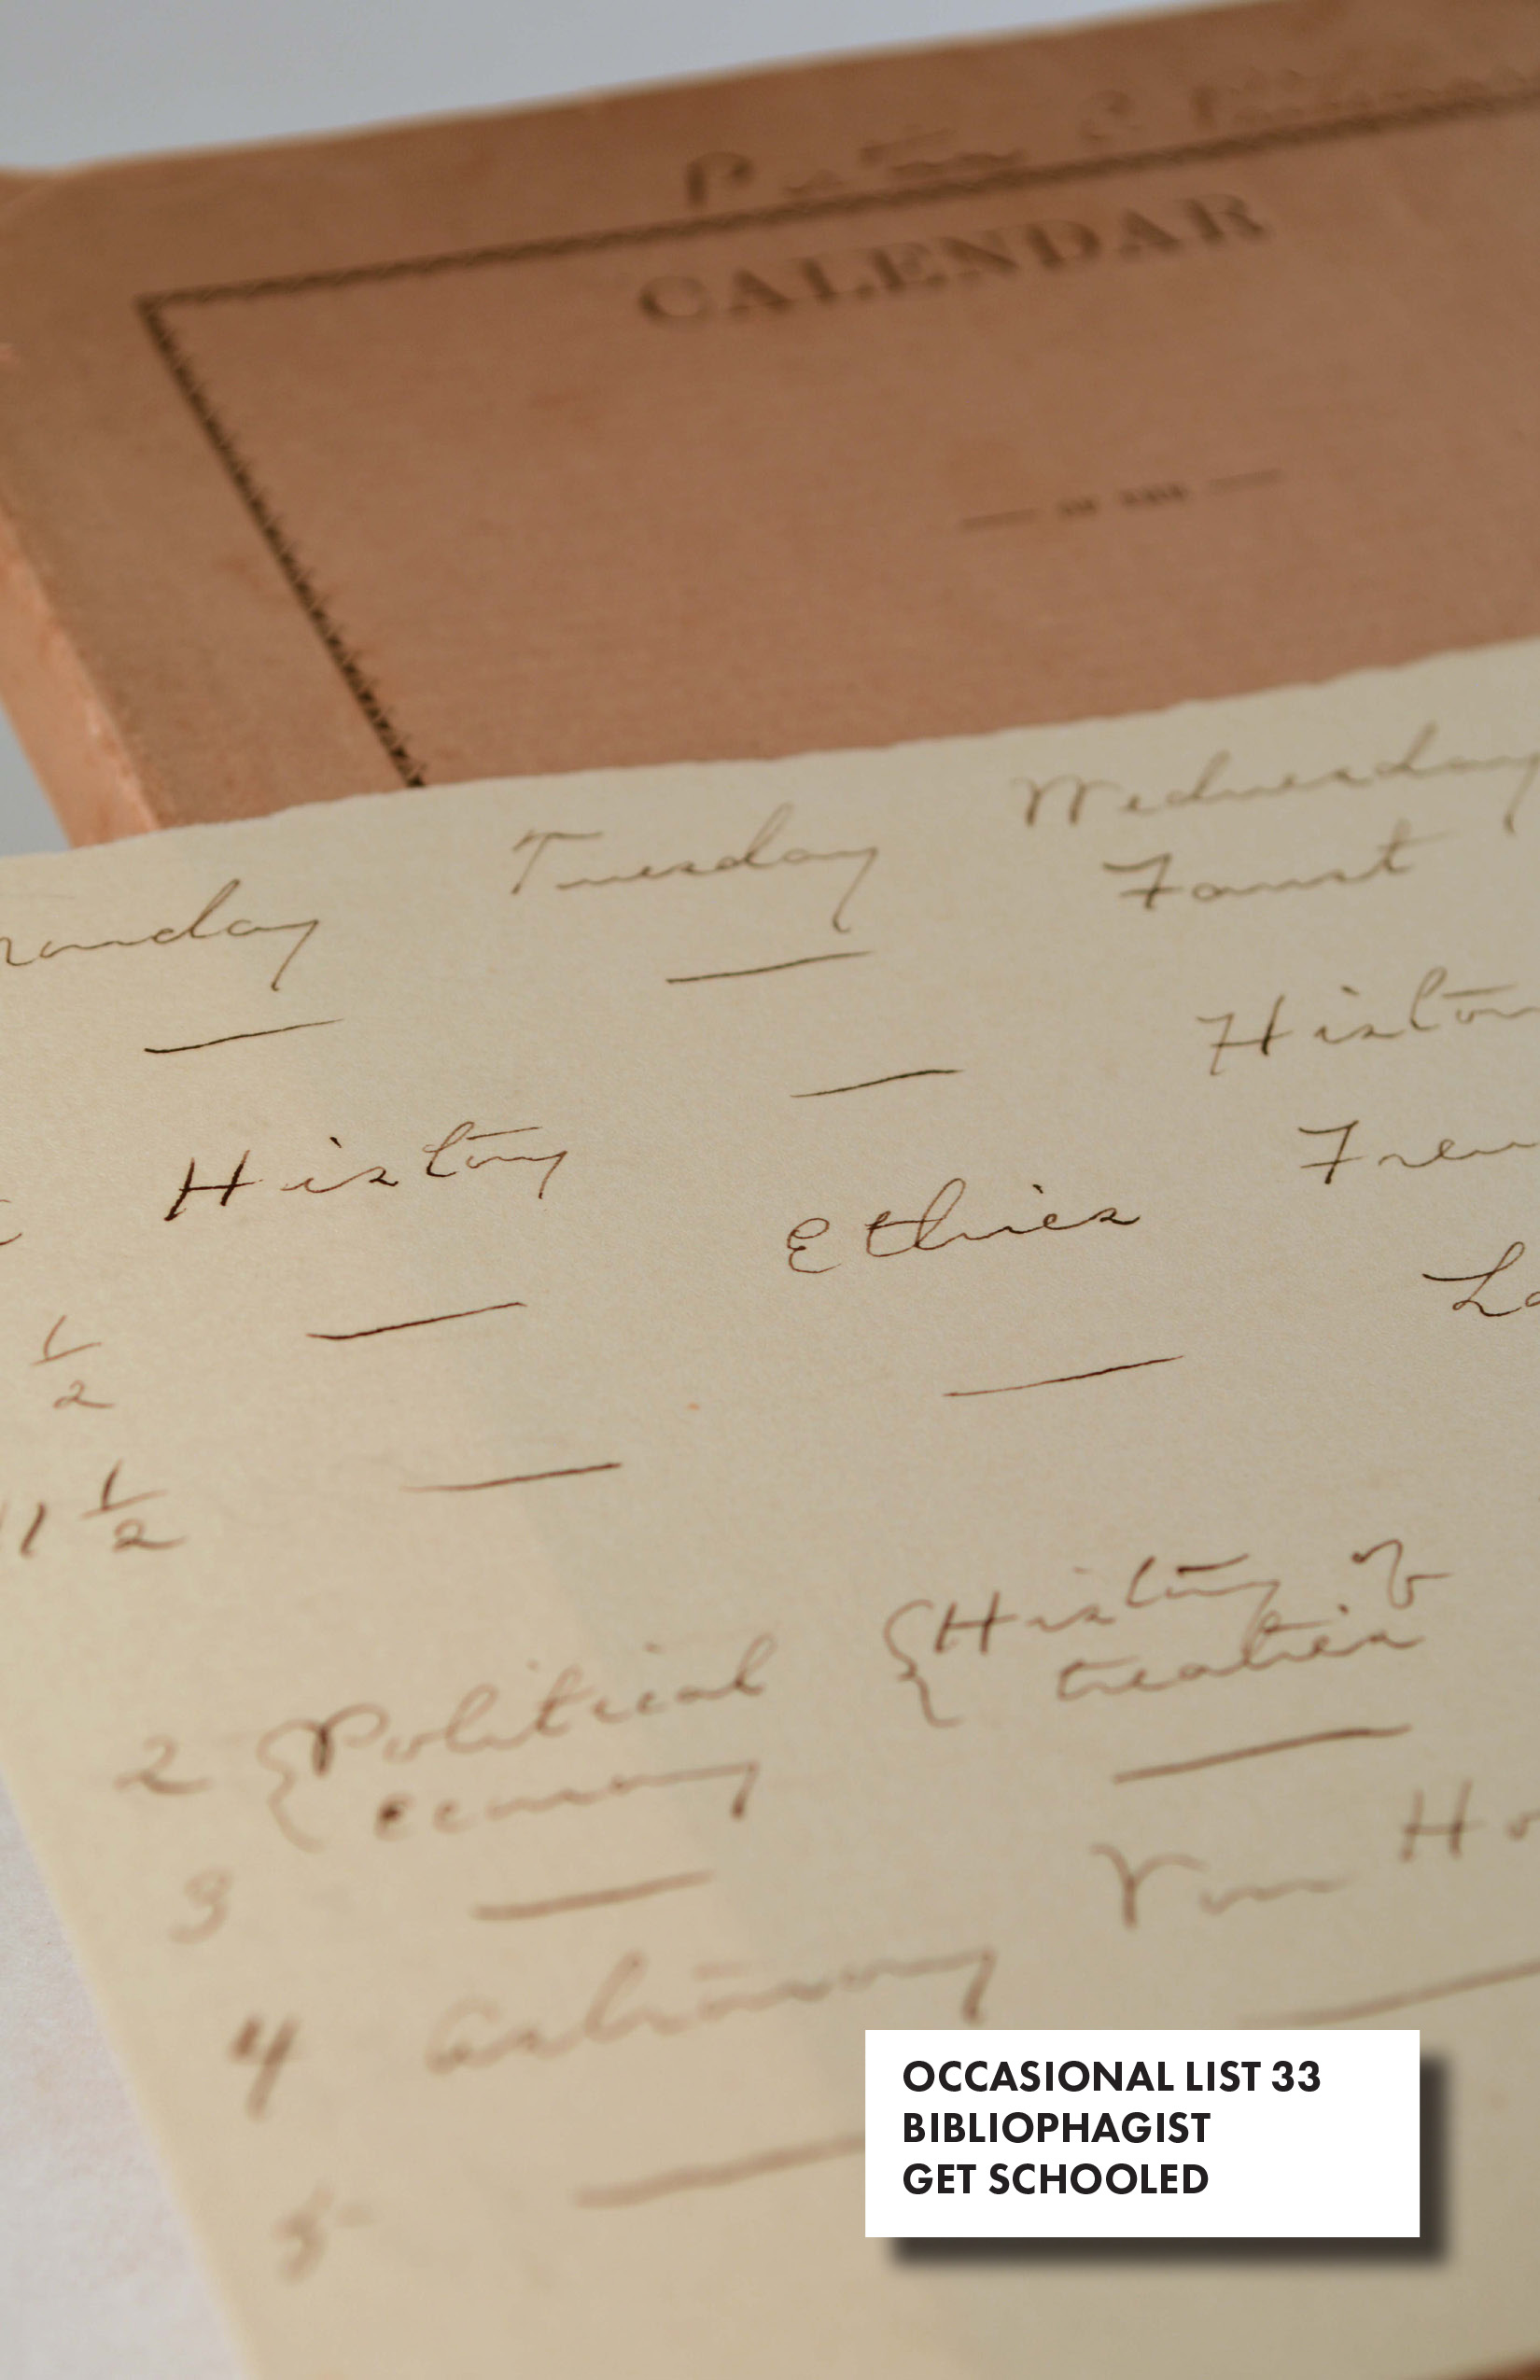 CALENDAR
Monday Tuesday Wednesday
— — Faust
History — History
— Ethics
1/2 — —
11 1/2 —
2 { Political { History of
economy treaties
3 — —
4 Astronomy Von
5 —
OCCASIONAL LIST 33
BIBLIOPHAGIST
GET SCHOOLED